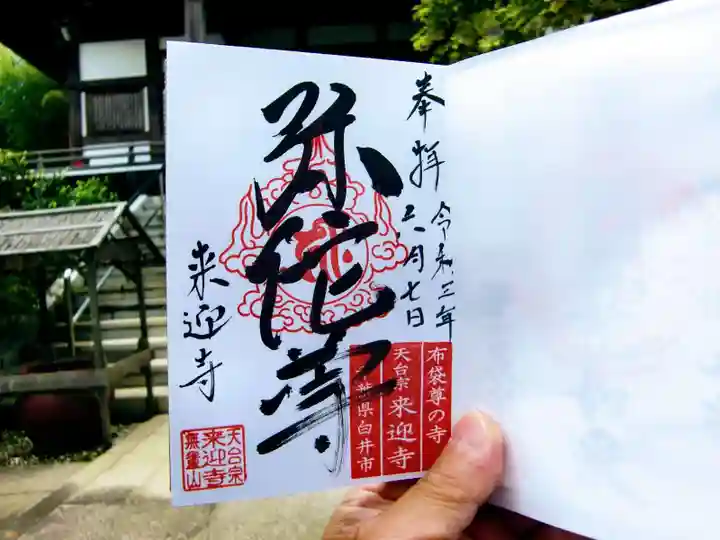 奉拝
令和三年
五月七日
弥陀尊
来迎寺
布袋尊の寺
天台宗 来迎寺
千葉県白井市
天台宗
来迎寺
無量山